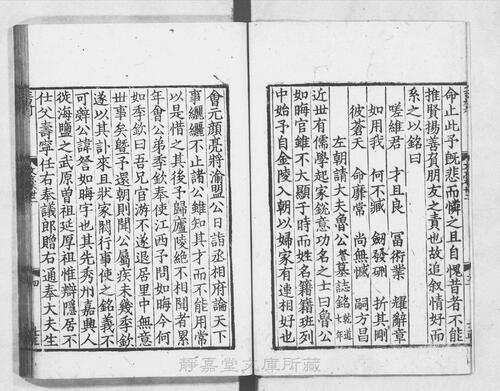 命止此予旣悲而憐之且自愧昔者不能
推賢揚善負朋友之責也故追叙情好而
系之以銘曰
嗟維君　才且良　冨術業　耀辭章
如用我　何不臧　劒發硎　折其剛
彼蒼天　命靡常　尚無憾　嗣方昌
左朝請大夫魯公詧墓誌銘乾道七年
近世有儒學起家銳意功名之士曰魯公
如晦官雖不大顯于時而姓名籍籍班列
中始予自金陵入朝以婦家有連相好也
會元顔亮將渝盟公日詣丞相府論天下
事纚纚不止諸公雖知其才而不能用常
以是惜之其後予歸廬陵絶不相聞者累
年會公弟季欽奉使江西予問如晦今何
如季欽曰吾兄官游不遂退居里中無意
世事矣曁予還朝則聞公屬疾未幾季欽
遂以其訃來且狀家閥行事使之銘義不
可辭公諱詧如晦字也其先秀州嘉興人
徙海鹽之武原曾祖延厚祖惟辯隱居不
仕父壽寧任右奉議郎贈右通奉大夫生
靜嘉堂文庫所藏